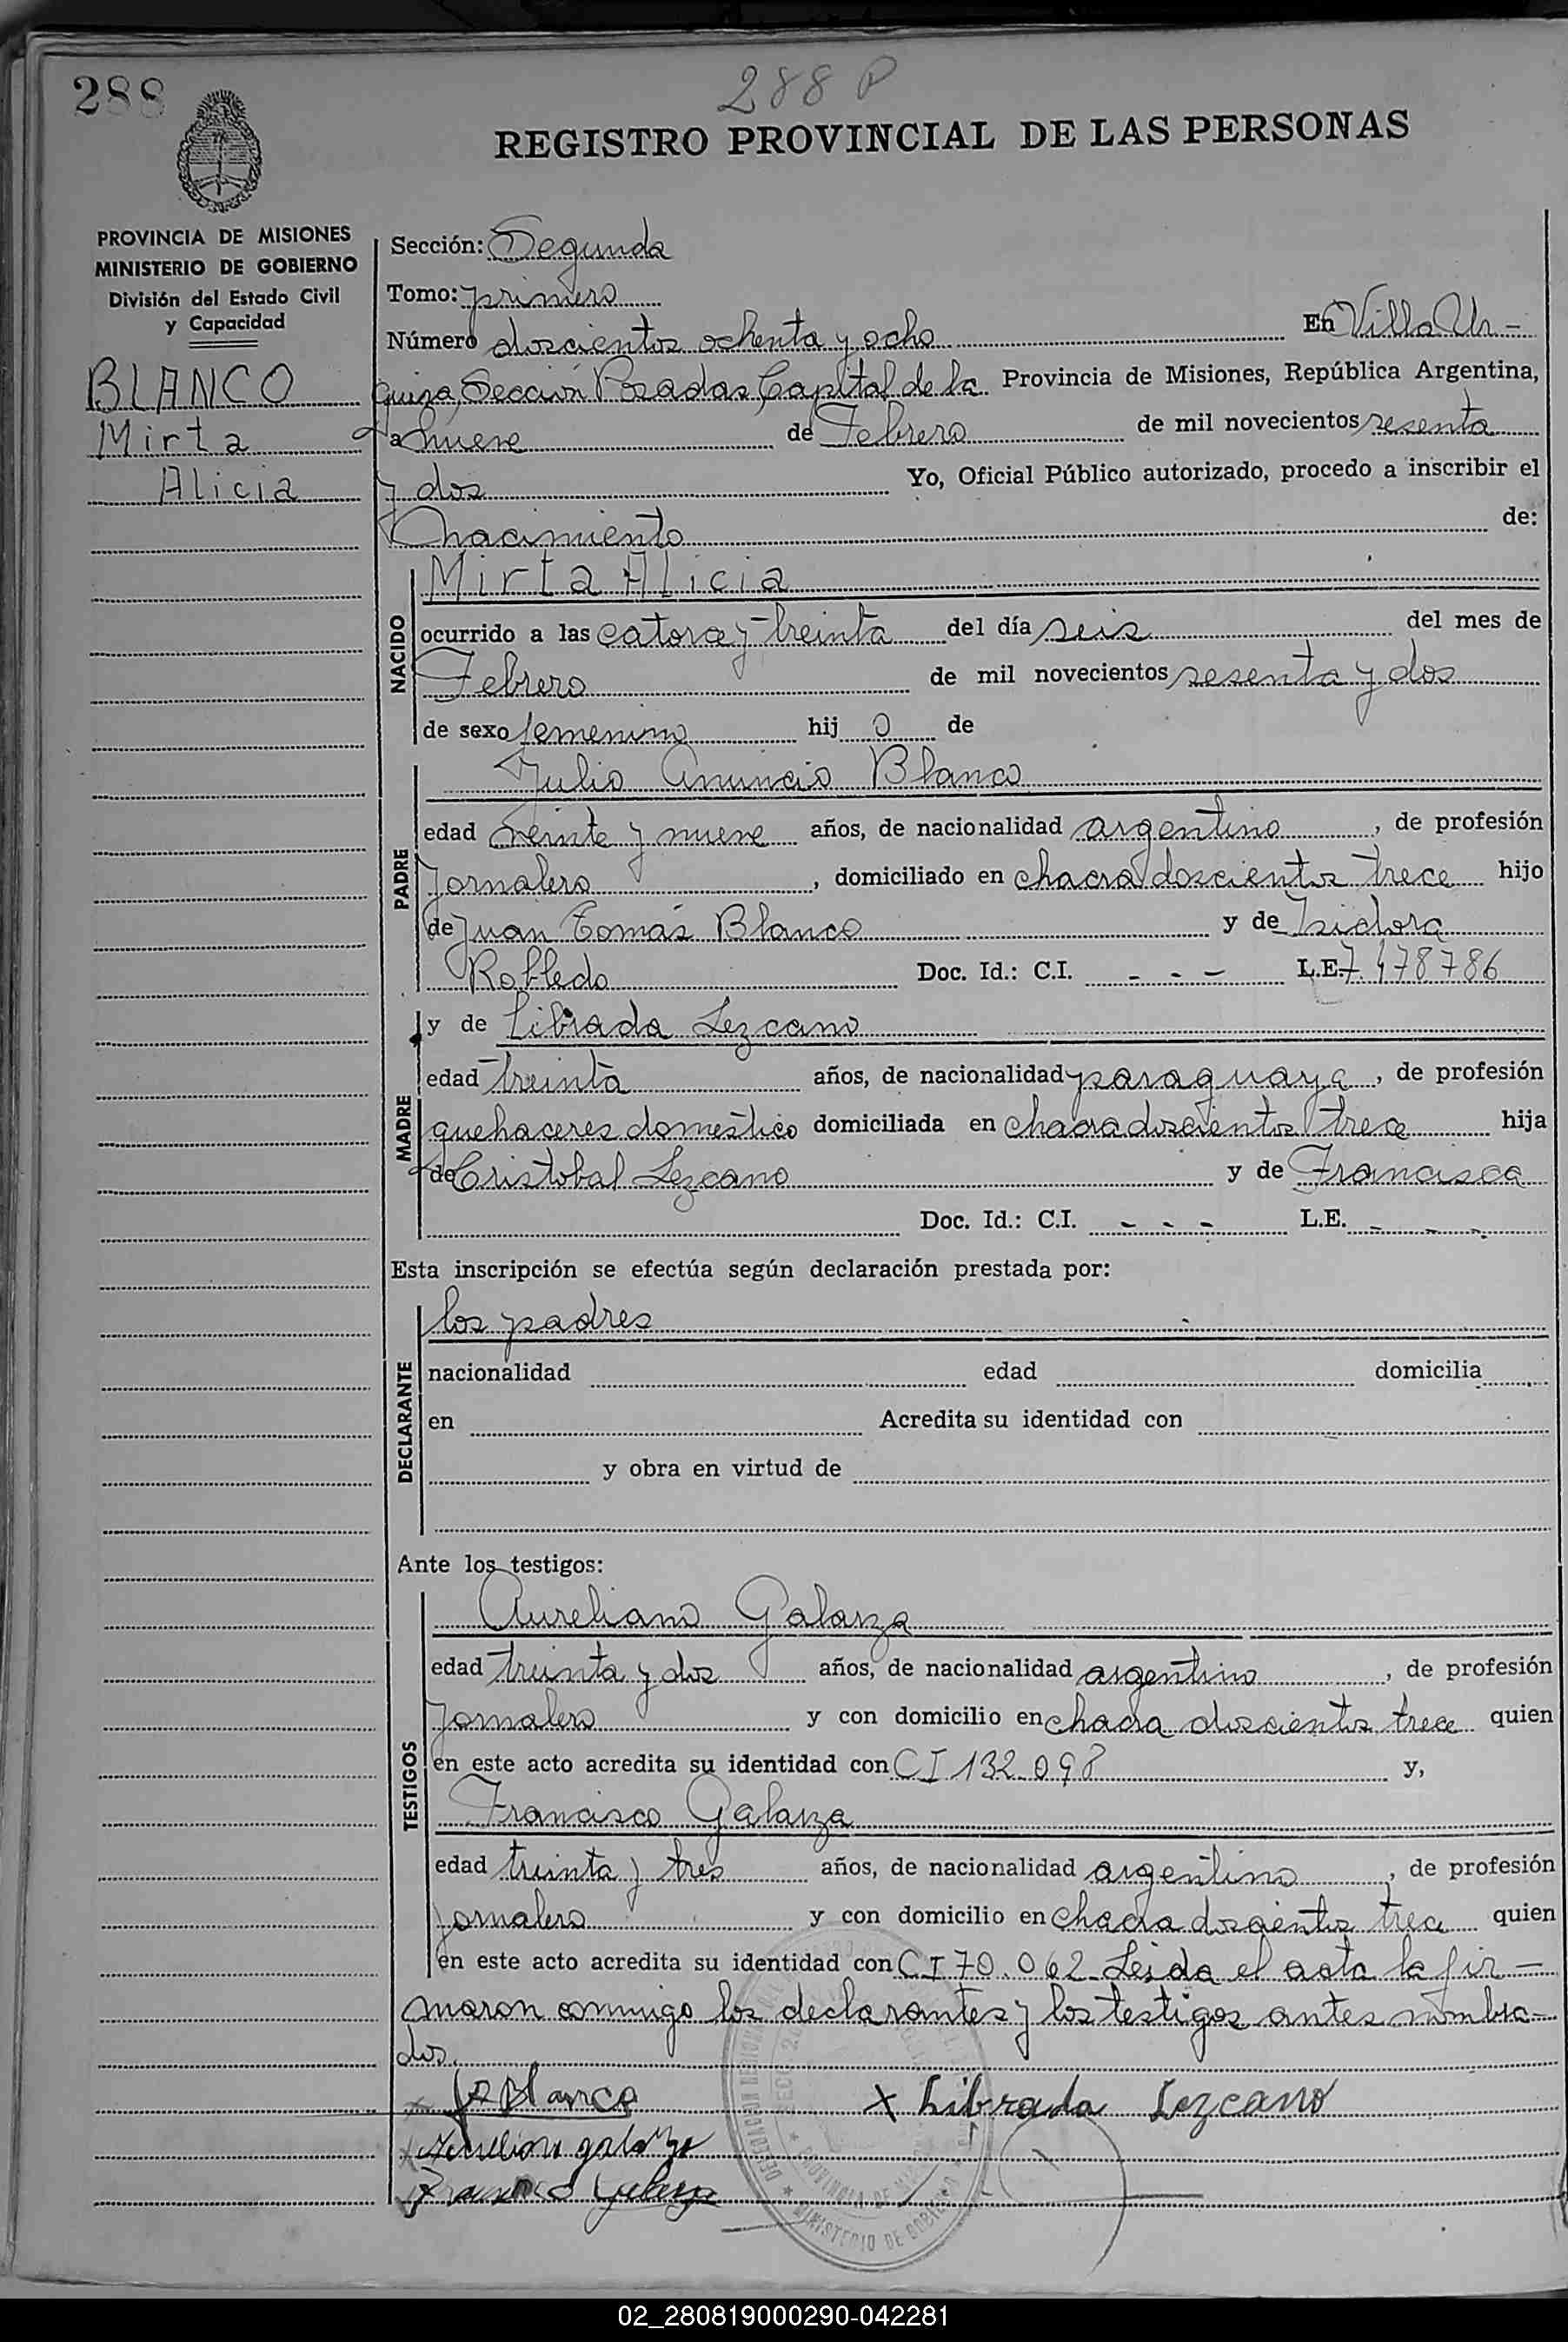 288
288 P
REGISTRO PROVINCIAL DE LAS PERSONAS
PROVINCIA DE MISIONES
MINISTERIO DE GOBIERNO
División del Estado Civil
y Capacidad
BLANCO
Mirta
Alicia
Sección: Segunda
Tomo: primero
Número doscientos ochenta y ocho En Villa Ur-
quiza, Sección Posadas Capital de la Provincia de Misiones, República Argentina,
a nueve de Febrero de mil novecientos sesenta
y dos Yo, Oficial Público autorizado, procedo a inscribir el
nacimiento de:
NACIDO
Mirta Alicia
ocurrido a las catorce y treinta del día seis del mes de
Febrero de mil novecientos sesenta y dos
de sexo femenino hij o de
PADRE
Julio Anuncio Blanco
edad veinte y nueve años, de nacionalidad argentino, de profesión
jornalero, domiciliado en chacra doscientos trece hijo
de Juan Tomás Blanco y de Isidora
Robledo Doc. Id.: C.I. - - - L.E. 7.478786
MADRE
y de Librada Lezcano
edad treinta años, de nacionalidad paraguaya, de profesión
quehaceres domestico domiciliada en chacra doscientos trece hija
de Cristobal Lezcano y de Francisca
Doc. Id.: C.I. - - - L.E. - - -
Esta inscripción se efectúa según declaración prestada por:
DECLARANTE
los padres
nacionalidad edad domicilia
en Acredita su identidad con
y obra en virtud de
Ante los testigos:
TESTIGOS
Aureliano Galarza
edad treinta y dos años, de nacionalidad argentino, de profesión
jornalero y con domicilio en chacra doscientos trece quien
en este acto acredita su identidad con CI 132.098 y,
Francisco Galarza
edad treinta y tres años, de nacionalidad argentino, de profesión
jornalero y con domicilio en chacra doscientos trece quien
en este acto acredita su identidad con CI 70.062 Leida el acta la fir-
maron conmigo los declarantes y los testigos antes nombra-
dos.
Blanco x Librada Lezcano
galarza
MINISTERIO DE GOBIERNO
02_280819000290-042281